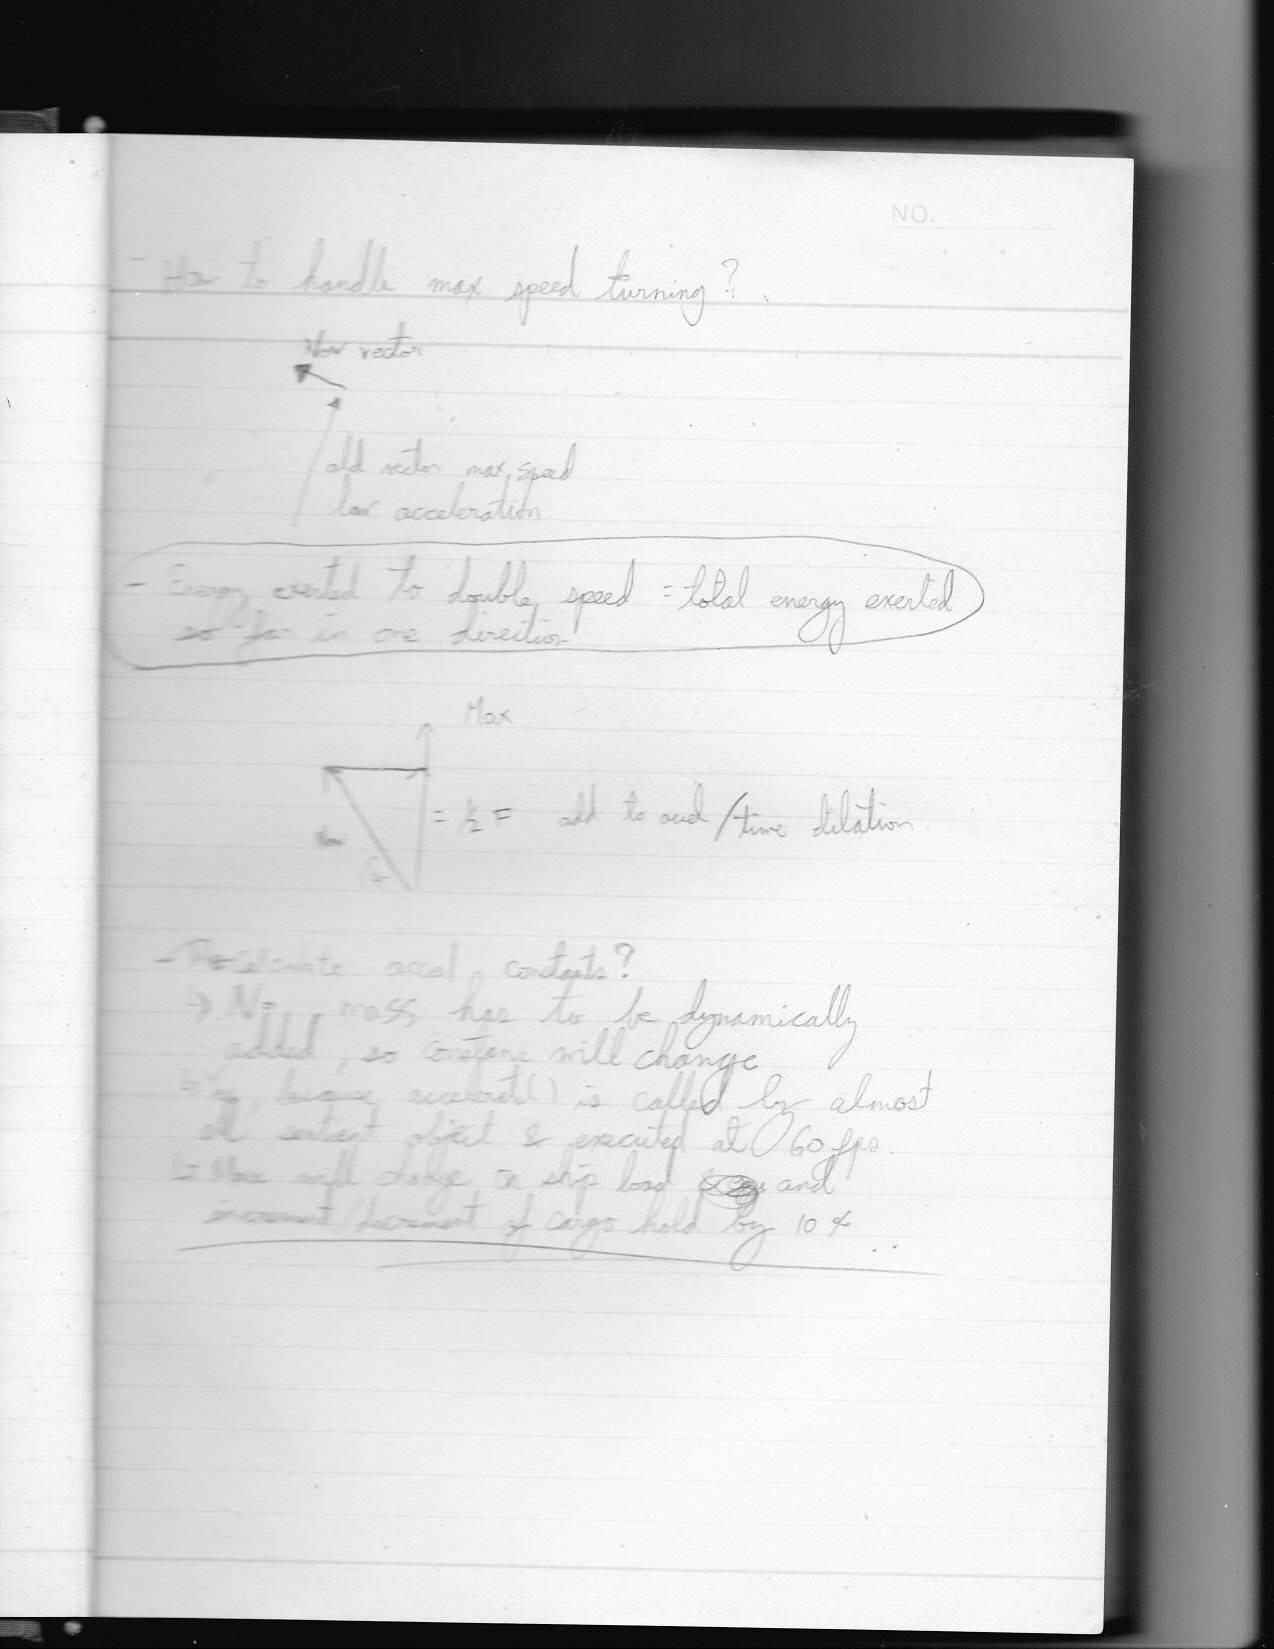 NO.
- How to handle max speed turning?
New vector
old vector max speed
low acceleration
- Energy exerted to double speed = total energy exerted
so far in one direction
Max
= 1/2 F add to / time dilation
New
- Recalculate accel constants?
mass has to be dynamically
added, so will change
yes, because accelerate() is called by almost
all sentient object & executed at 60 fps.
will change on ship load and
increment/decrement of cargo hold by 10%